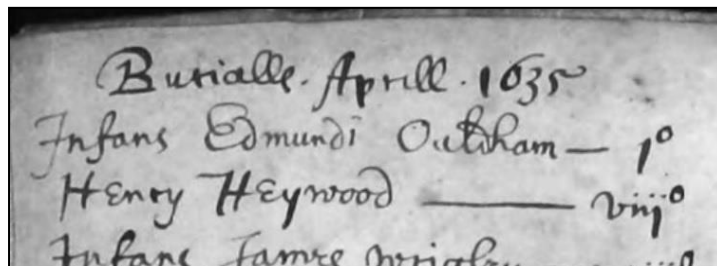 Burialls. Aprill. 1635
Infans Edmundi Ouldham — 1º
Henry Heywood — viijº
Infans Jamis Wrigley